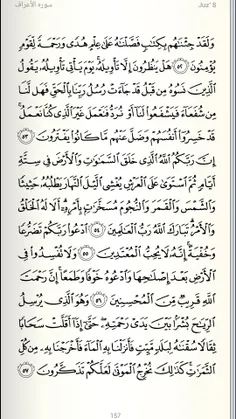 سورة الأعراف Juz' 8
وَلَقَدْ جِئْنَٰهُم بِكِتَٰبٍ فَصَّلْنَٰهُ عَلَىٰ عِلْمٍ هُدًى وَرَحْمَةً لِّقَوْمٍ
يُؤْمِنُونَ ٥٢ هَلْ يَنظُرُونَ إِلَّا تَأْوِيلَهُۥ ۚ يَوْمَ يَأْتِى تَأْوِيلُهُۥ يَقُولُ
ٱلَّذِينَ نَسُوهُ مِن قَبْلُ قَدْ جَآءَتْ رُسُلُ رَبِّنَا بِٱلْحَقِّ فَهَل لَّنَا
مِن شُفَعَآءَ فَيَشْفَعُوا۟ لَنَآ أَوْ نُرَدُّ فَنَعْمَلَ غَيْرَ ٱلَّذِى كُنَّا نَعْمَلُ ۚ
قَدْ خَسِرُوٓا۟ أَنفُسَهُمْ وَضَلَّ عَنْهُم مَّا كَانُوا۟ يَفْتَرُونَ ٥٣
إِنَّ رَبَّكُمُ ٱللَّهُ ٱلَّذِى خَلَقَ ٱلسَّمَٰوَٰتِ وَٱلْأَرْضَ فِى سِتَّةِ
أَيَّامٍ ثُمَّ ٱسْتَوَىٰ عَلَى ٱلْعَرْشِ يُغْشِى ٱلَّيْلَ ٱلنَّهَارَ يَطْلُبُهُۥ حَثِيثًا
وَٱلشَّمْسَ وَٱلْقَمَرَ وَٱلنُّجُومَ مُسَخَّرَٰتٍۭ بِأَمْرِهِۦٓ ۗ أَلَا لَهُ ٱلْخَلْقُ
وَٱلْأَمْرُ ۗ تَبَارَكَ ٱللَّهُ رَبُّ ٱلْعَٰلَمِينَ ٥٤ ٱدْعُوا۟ رَبَّكُمْ تَضَرُّعًا
وَخُفْيَةً ۚ إِنَّهُۥ لَا يُحِبُّ ٱلْمُعْتَدِينَ ٥٥ وَلَا تُفْسِدُوا۟ فِى
ٱلْأَرْضِ بَعْدَ إِصْلَٰحِهَا وَٱدْعُوهُ خَوْفًا وَطَمَعًا ۚ إِنَّ رَحْمَتَ
ٱللَّهِ قَرِيبٌ مِّنَ ٱلْمُحْسِنِينَ ٥٦ وَهُوَ ٱلَّذِى يُرْسِلُ
ٱلرِّيَٰحَ بُشْرًۢا بَيْنَ يَدَىْ رَحْمَتِهِۦ ۖ حَتَّىٰٓ إِذَآ أَقَلَّتْ سَحَابًا
ثِقَالًا سُقْنَٰهُ لِبَلَدٍ مَّيِّتٍ فَأَنزَلْنَا بِهِ ٱلْمَآءَ فَأَخْرَجْنَا بِهِۦ مِن كُلِّ
ٱلثَّمَرَٰتِ ۚ كَذَٰلِكَ نُخْرِجُ ٱلْمَوْتَىٰ لَعَلَّكُمْ تَذَكَّرُونَ ٥٧
157